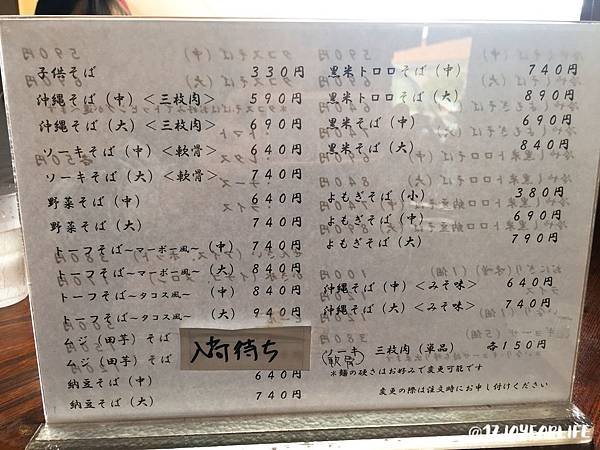 子供そば 330円
沖縄そば（中）＜三枚肉＞ 590円
沖縄そば（大）＜三枚肉＞ 690円
ソーキそば（中）＜軟骨＞ 640円
ソーキそば（大）＜軟骨＞ 740円
野菜そば（中） 640円
野菜そば（大） 740円
トーフそば～マーボー風～（中） 740円
トーフそば～マーボー風～（大） 840円
トーフそば～タコス風～（中） 840円
トーフそば～タコス風～（大） 940円
ムジ（田芋）そば
ムジ（田芋）そば
入荷待ち
納豆そば（中） 640円
納豆そば（大） 740円
黒米トロロそば（中） 740円
黒米トロロそば（大） 890円
黒米そば（中） 690円
黒米そば（大） 840円
よもぎそば（小） 380円
よもぎそば（中） 690円
よもぎそば（大） 790円
沖縄そば（中）＜みそ味＞ 640円
沖縄そば（大）＜みそ味＞ 740円
（ソーキ 軟骨）三枚肉（単品） 各150円
*麺の硬さはお好みで変更可能です
変更の際は注文時にお申し付けください
@17JOYFORLIFE